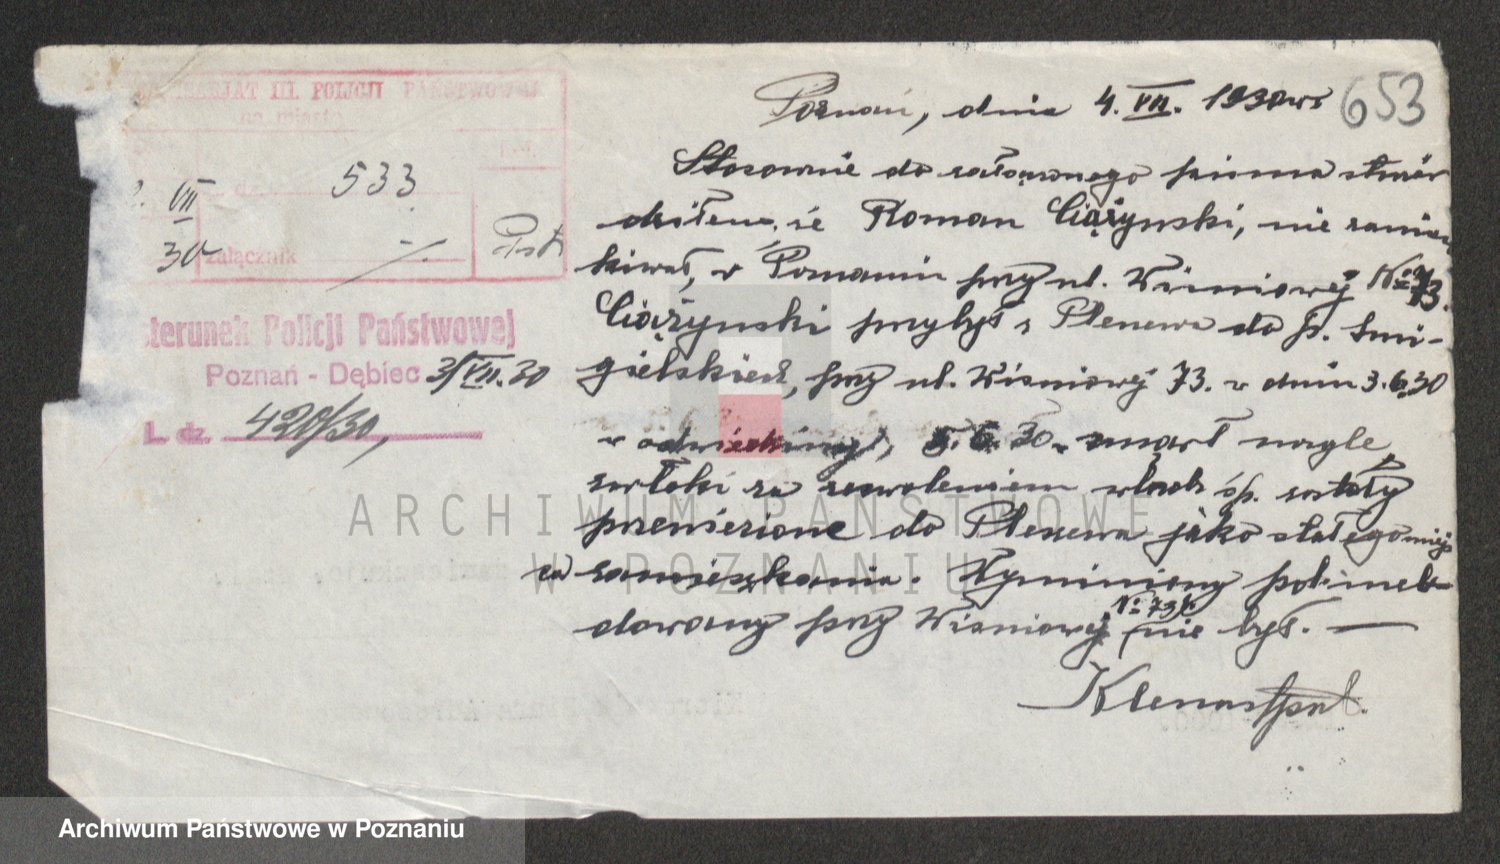 653
Poznań, dnia 4. VII. 1930 
Stosownie do załączonego pisma stwier
dziłem, że Roman Ciążyński, nie zamiesz
kiwał, w Poznaniu przy ul. Wiśniowej No 73.
Ciążyński przybył z Plenewa do p. Śmi-
gielskich, przy ul. Wiśniowej 73. w dniu 3.6.30
w odwiedziny, 5.6.30. zmarł nagle
zwłoki za zezwoleniem władz śp. zostały
przewiezione do Plenewa jako stałego miejs
ca zamieszkania. Wymieniony pol. meld
dowany przy Wiśniowej No 73 nie był. —
III. POLICJI PAŃSTWOWEJ
na miasto
533
VII
30
załącznik
-/.
Post
sterunek Policji Państwowej
Poznań - Dębiec 3/VII.30
L. dz. 420/30,
ARCHIWUM PAŃSTWOWE
W POZNANIU
Archiwum Państwowe w Poznaniu